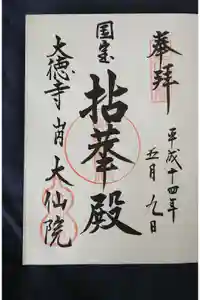 奉拝
平成十四年
五月九日
国宝
拈華殿
大徳寺 山内 大仙院